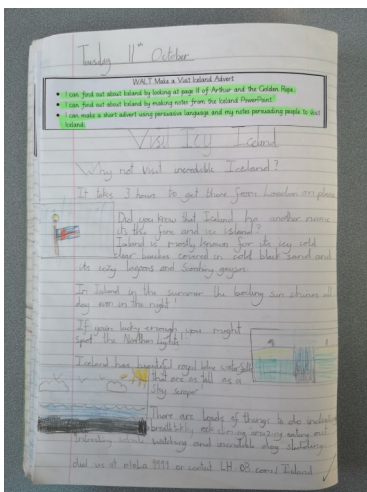 Tuesday 11th October
WALT Make a Visit Iceland Advert
I can find out about Iceland by looking at page 11 of Arthur and the Golden Rope.
I can find out about Iceland by making notes from the Iceland PowerPoint.
I can make a short advert using persuasive language and my notes persuading people to visit
Iceland.
Visit Icy Iceland
Why not visit incredible Iceland?
It takes 3 hours to get there from London on plane
Did you know that Iceland has another name
it's the fire and ice island?
Iceland is mostly known for its icy cold
clear beaches covered in cold black sand and
its cozy lagoons and
In Iceland in the summer the boiling sun shines all
day even in the night!
If you're lucky enough you might
spot the Northan lights!
Iceland has wonderful royal blue waterfalls
that are as tall as a
sky scraper
There are loads of things to do including
breathtaking rock climbing amazing
watching and incredible dog
us at 9991 or contact LH.03.com/Iceland